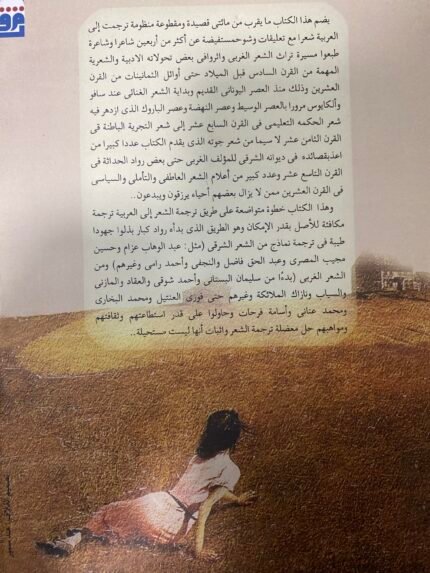 يضم هذا الكتاب ما يقرب من مائتى قصيدة ومقطوعة منظومة ترجمت إلى
العربية شعرا مع تعليقات وشروح مستفيضة عن أكثر من أربعين شاعرا وشاعرة
طبعوا مسيرة تراث الشعر الغربى والروافى بعض تحولاته الادبية والشعرية
المهمة من القرن السادس قبل الميلاد حتى أوائل الثمانينات من القرن
العشرين وذلك منذ العصر اليونانى القديم وبداية الشعر الغنائى عند سافو
وألكايوس مرورا بالعصر الوسيط وعصر النهضة وعصر الباروك الذى ازدهر فيه
شعر الحكمه التعليمى فى القرن السابع عشر إلى شعر التجربة الباطنة فى
القرن الثامن عشر لا سيما من شعر جوته الذى يقدم الكتاب عددا كبيرا من
اعذبقصائده فى ديوانه الشرقى للمؤلف الغربى حتى بعض رواد الحداثة فى
القرن التاسع عشر وعدد كبير من أعلام الشعر العاطفى والتأملى والسياسى
فى القرن العشرين ممن لا يزال بعضهم أحياء يرزقون ويبدعون..
وهذا الكتاب خطوة متواضعة على طريق ترجمة الشعر إلى العربية ترجمة
مكافئة للأصل بقدر الإمكان وهو الطريق الذى بدأه رواد كبار بذلوا جهودا
طيبة فى ترجمة نماذج من الشعر الشرقى (مثل: عبد الوهاب عزام وحسين
مجيب المصرى وعبد الحق فاضل والنجفى وأحمد رامى وغيرهم) ومن
الشعر الغربى (بدءًا من سليمان البستانى وأحمد شوقى والعقاد والمازنى
والسياب ونازك الملائكة وغيرهم حتى فوزى العنتيل ومحمد البخارى
ومحمد عنانى وأسامة فرحات وحاولوا على قدر استطاعتهم وثقافتهم
ومواهبهم حل معضلة ترجمة الشعر واثبات أنها ليست مستحيلة..